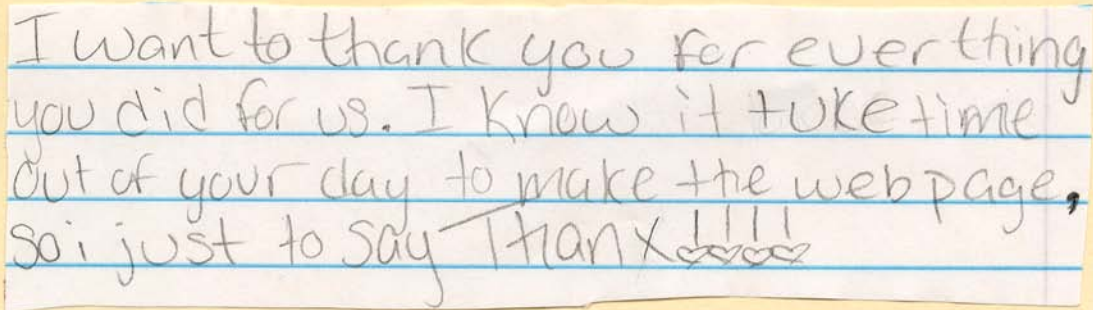 I want to thank you for everthing
you did for us. I know it tuke time
out of your day to make the webpage,
so i just to say Thanx!!!!